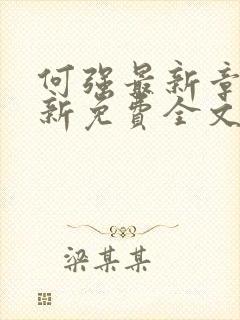 何强最新章
新免費全文
梁某某